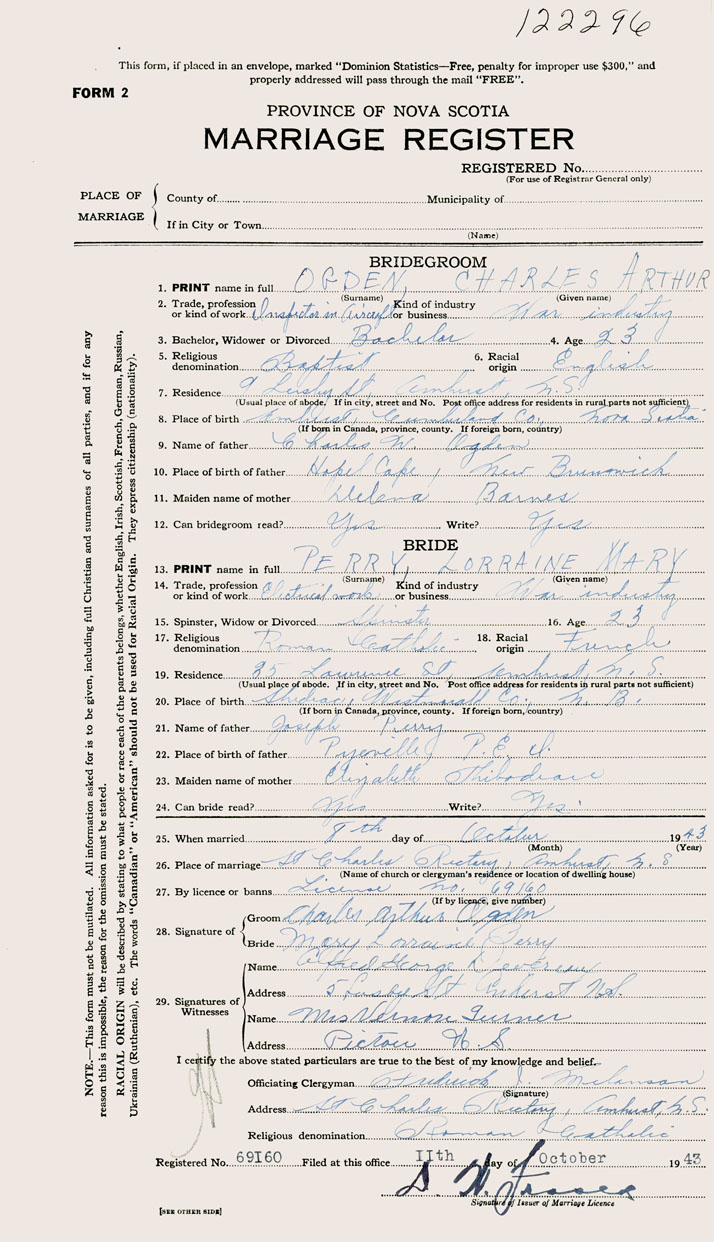 122296
This form, if placed in an envelope, marked "Dominion Statistics—Free, penalty for improper use $300," and
properly addressed will pass through the mail "FREE".
FORM 2
PROVINCE OF NOVA SCOTIA
MARRIAGE REGISTER
REGISTERED No.
(For use of Registrar General only)
PLACE OF MARRIAGE
County of Municipality of
If in City or Town
(Name)
BRIDEGROOM
1. PRINT name in full OGDEN, CHARLES ARTHUR
(Surname) (Given name)
2. Trade, profession or kind of work Inspector in Aircraft Kind of industry or business War industry
3. Bachelor, Widower or Divorced Bachelor 4. Age 23
5. Religious denomination Baptist 6. Racial origin English
7. Residence 9 St, Amherst, N.S.
(Usual place of abode. If in city, street and No. Post office address for residents in rural parts not sufficient)
8. Place of birth Amherst, Cumberland Co., Nova Scotia
(If born in Canada, province, county. If foreign born, country)
9. Name of father Charles W. Ogden
10. Place of birth of father Hopel Cape, New Brunswick
11. Maiden name of mother Barnes
12. Can bridegroom read? Yes Write? Yes
BRIDE
13. PRINT name in full PERRY, LORRAINE MARY
(Surname) (Given name)
14. Trade, profession or kind of work Electrical work Kind of industry or business War industry
15. Spinster, Widow or Divorced 16. Age 23
17. Religious denomination Roman Catholic 18. Racial origin French
19. Residence 35 Lawrence St Amherst N.S.
(Usual place of abode. If in city, street and No. Post office address for residents in rural parts not sufficient)
20. Place of birth Shediac, Westmorld Co., N.B.
(If born in Canada, province, county. If foreign born, country)
21. Name of father Joseph Perry
22. Place of birth of father P.E.I.
23. Maiden name of mother Elizabeth Thibodeau
24. Can bride read? Yes Write? Yes.
25. When married 8th day of October 1943
(Month) (Year)
26. Place of marriage St Charles Rectory, Amherst, N.S
(Name of church or clergyman's residence or location of dwelling house)
27. By licence or banns License no. 69160
(If by licence, give number)
28. Signature of
Groom Charles Arthur Ogden
Bride Mary Lorraine Perry
29. Signatures of Witnesses
Name Alfred George
Address 5 St Amherst N.S.
Name Mrs Vernon Turner
Address Pictou N.S.
I certify the above stated particulars are true to the best of my knowledge and belief.
Officiating Clergyman Frederick J. Melanson
(Signature)
Address St Charles Rectory, Amherst, N.S.
Religious denomination Roman Catholic
Registered No. 69I60 Filed at this office IIth day of October 1943
Signature of Issuer of Marriage Licence
[SEE OTHER SIDE]
NOTE.—This form must not be mutilated. All information asked for is to be given, including full Christian and surnames of all parties, and if for any
reason this is impossible, the reason for the omission must be stated.
RACIAL ORIGIN will be described by stating to what people or race each of the parents belongs, whether English, Irish, Scottish, French, German, Russian,
Ukrainian (Ruthenian), etc. The words "Canadian" or "American" should not be used for Racial Origin. They express citizenship (nationality).